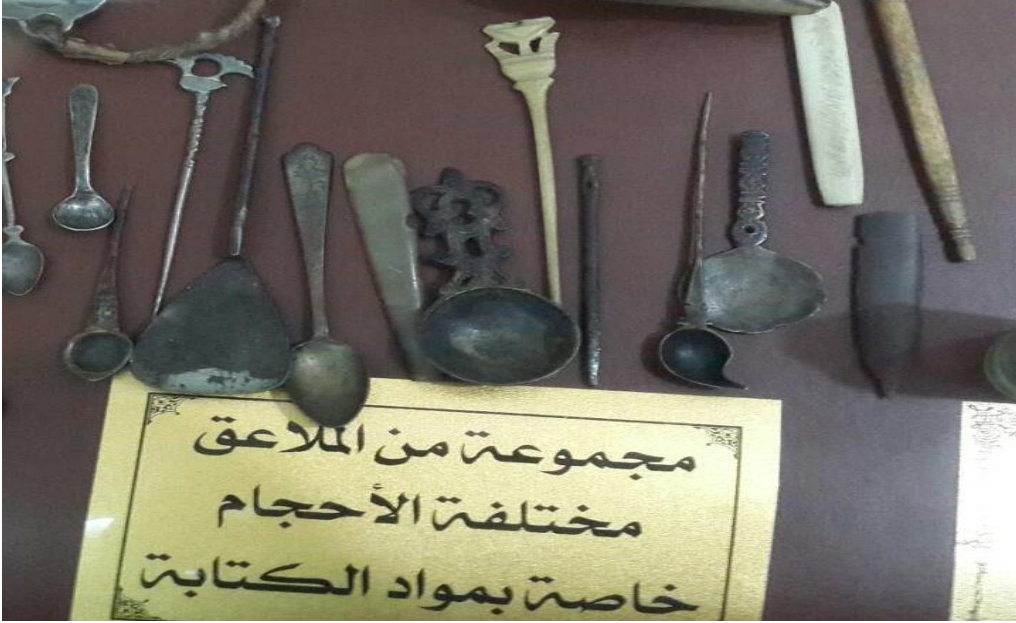 مجموعة من الملاعق
مختلفة الأحجام
خاصة بمواد الكتابة